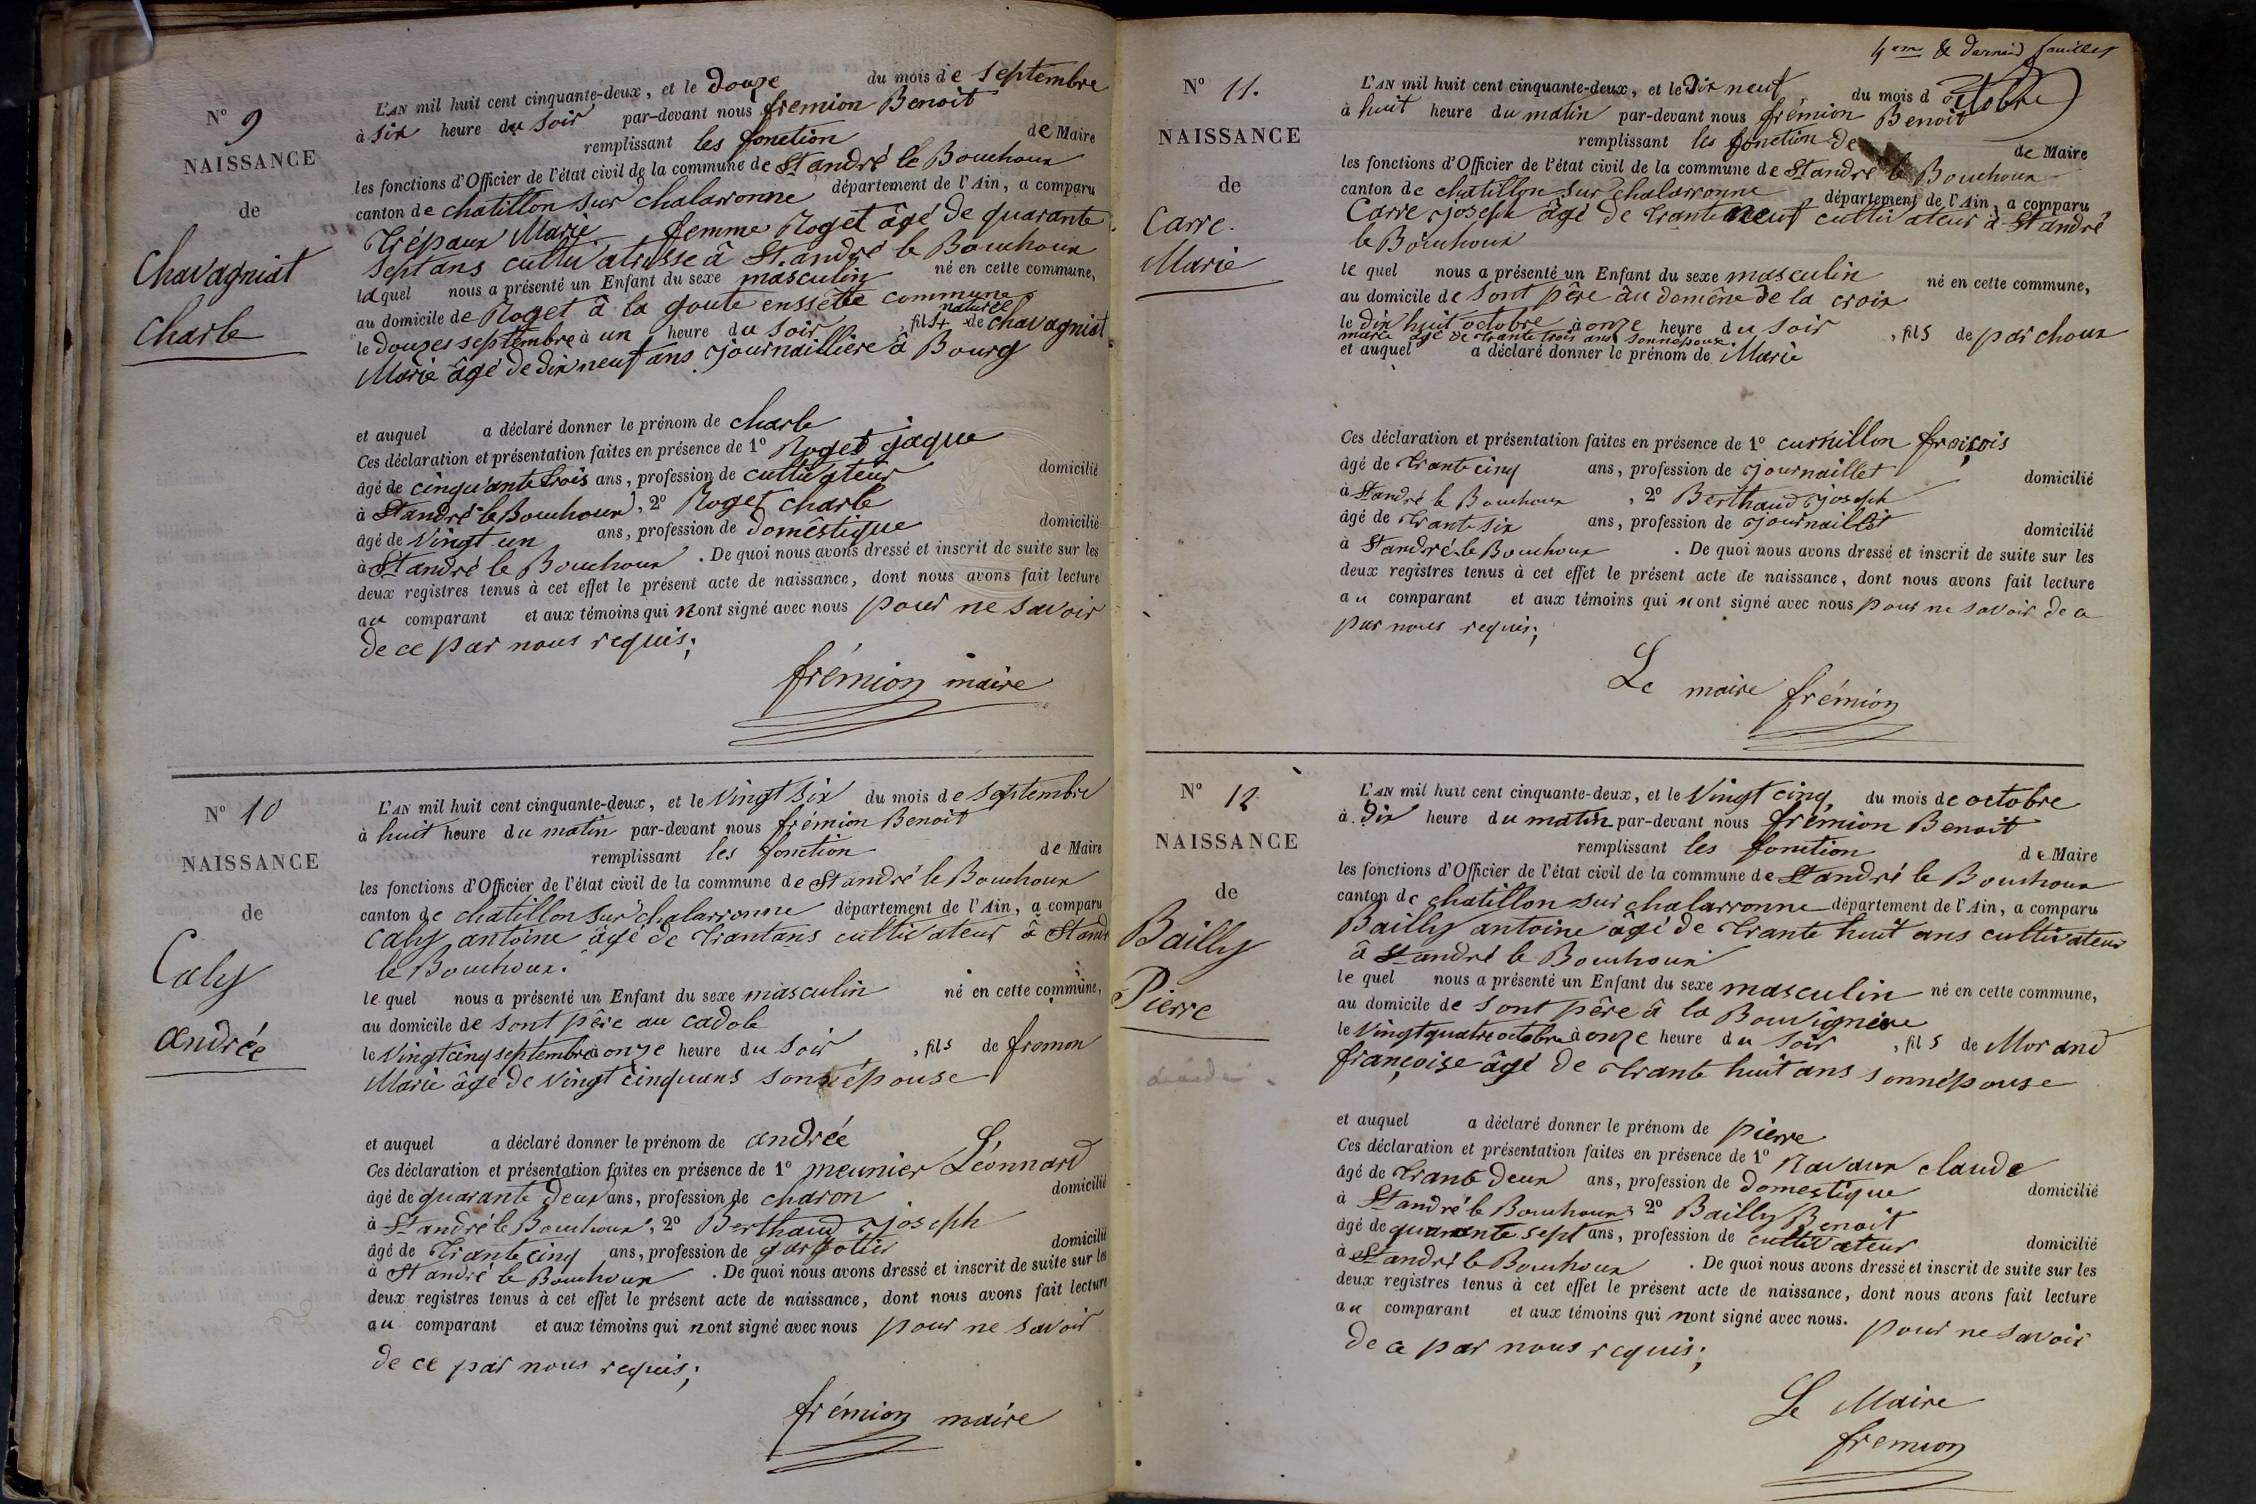 N° 9
NAISSANCE
de
Chavagniat
Charle
L'AN mil huit cent cinquante-deux, et le douze du mois de septembre
à six heure du soir par-devant nous fremion Benoit
remplissant les fonction de Maire
les fonctions d'Officier de l'état civil de la commune de St andré le Bouchoux
canton de chatillon sur chalaronne département de l'Ain, a comparu
Trépaux Marie femme Roget âgé de quarante
sept ans cultivatrisse â St. andré le Bouchoux
laquel nous a présenté un Enfant du sexe masculin né en cette commune,
au domicile de Roget â la goute enssette commune
naturel
le douzes septembre à un heure du soir, fils + de chavagniat
Marie âgé de dix neuf ans journaillière â Bourg
et auquel a déclaré donner le prénom de charle
Ces déclaration et présentation faites en présence de 1° Roget jaque
âgé de cinquante trois ans, profession de cultivateur domicilié
à St andré le Bouchoux, 2° Roget charle
âgé de vingt un ans, profession de domêstique domicilié
à St andré le Bouchoux. De quoi nous avons dressé et inscrit de suite sur les
deux registres tenus à cet effet le présent acte de naissance, dont nous avons fait lecture
au comparant et aux témoins qui nont signé avec nous pour ne savoir
de ce par nous requis;
frémion maire
N° 10
NAISSANCE
de
Caly
andrée
L'AN mil huit cent cinquante-deux, et le vingt six du mois de septembre
à huit heure du matin par-devant nous frémion Benoit
remplissant les fonction de Maire
les fonctions d'Officier de l'état civil de la commune de St andré le Bouchoux
canton de chatillon sur chalarronne département de l'Ain, a comparu
Caly antoine âgé de trantans cultivateur â St andré
le Bouchoux.
le quel nous a présenté un Enfant du sexe masculin né en cette commune,
au domicile de sont pêre au cadole
le vingt cinq septembre à onze heure du soir, fils de fromon
Marie âgé de vingt cinquans sonnépouse
et auquel a déclaré donner le prénom de andrée
Ces déclaration et présentation faites en présence de 1° meunier Léonnard
âgé de quarante deux ans, profession de charon domicilié
à St andré le Bouchoux, 2° Berthaud joseph
âgé de trante cinq ans, profession de domicilié
à St andré le Bouchoux. De quoi nous avons dressé et inscrit de suite sur les
deux registres tenus à cet effet le présent acte de naissance, dont nous avons fait lecture
au comparant et aux témoins qui nont signé avec nous pour ne savoir
de ce par nous requis;
frémion maire
4em & dernié feuillet
N° 11.
NAISSANCE
de
Carre.
Marie
L'AN mil huit cent cinquante-deux, et le Dix neuf du mois d octobre
à huit heure du matin par-devant nous frémion Benoit
remplissant les fonction de de Maire
les fonctions d'Officier de l'état civil de la commune de St andré le Bouchoux
canton de chatillon sur chalarronne département de l'Ain, a comparu
Carre joseph âgé de trante neuf cultivateur à St andré
le Bouchoux
le quel nous a présenté un Enfant du sexe masculin né en cette commune,
au domicile de sont pêre âu domêne de la croix
le dix huit octobre à onze heure du soir, fils de parchoux
marie âgé de trante trois ans sonnépoux.
et auquel a déclaré donner le prénom de Marie
Ces déclaration et présentation faites en présence de 1° curnillon fraiçois
âgé de trante cinq ans, profession de journaillet domicilié
à St andré le Bouchoux, 2° Berthaud joseph
âgé de trante six ans, profession de journaillet domicilié
à St andré le Bouchoux. De quoi nous avons dressé et inscrit de suite sur les
deux registres tenus à cet effet le présent acte de naissance, dont nous avons fait lecture
au comparant et aux témoins qui nont signé avec nous pour ne savoir de ce
par nous requis;
Le maire frémion
N° 12
NAISSANCE
de
Bailly
Pierre
L'AN mil huit cent cinquante-deux, et le Vingt cinq, du mois de octobre
à Dix heure du matin par-devant nous frémion Benoit
remplissant les fonction de Maire
les fonctions d'Officier de l'état civil de la commune de St andré le Bouchoux
canton de chatillon sur chalarronne département de l'Ain, a comparu
Bailly antoine âgé de trante huit ans cultivateur
â St andré le Bouchoux
le quel nous a présenté un Enfant du sexe masculin né en cette commune,
au domicile de sont pêre â la Bouvignére
le vingt quatre octobre à onze heure du soir, fils de Morand
françoise âgé de trante huit ans sonnépouse
et auquel a déclaré donner le prénom de pierre
Ces déclaration et présentation faites en présence de 1° Navaux claude
âgé de trante deux ans, profession de domestique domicilié
à St andré le Bouchoux 2° Bailly Benoit
âgé de quarante sept ans, profession de cultivateur domicilié
à St andré le Bouchoux. De quoi nous avons dressé et inscrit de suite sur les
deux registres tenus à cet effet le présent acte de naissance, dont nous avons fait lecture
au comparant et aux témoins qui nont signé avec nous. pour ne savoir
de ce par nous requis;
Le Maire
fremion